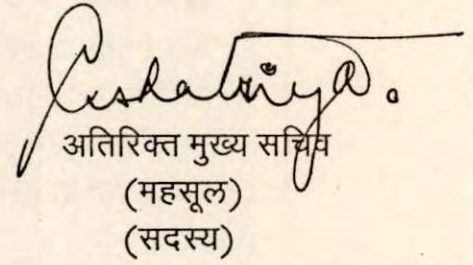 अतिरिक्त मुख्य सचिव
(महसूल)
(सदस्य)